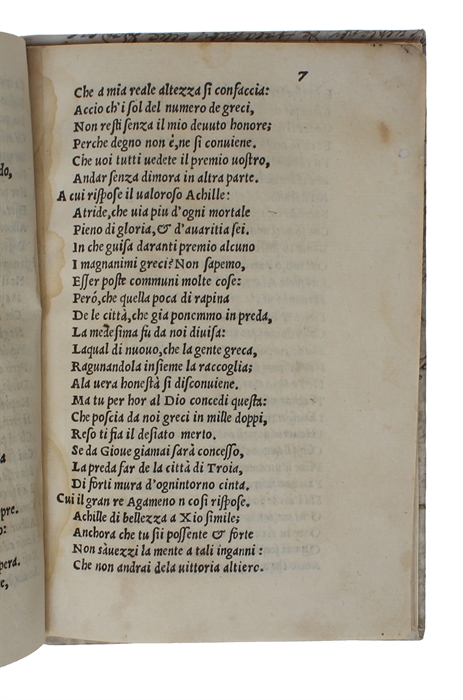 7
Che a mia reale altezza si confaccia:
Accio ch'i sol del numero de greci,
Non resti senza il mio deuuto honore;
Perche degno non è, ne si conuiene.
Che uoi tutti uedete il premio uostro,
Andar senza dimora in altra parte.
A cui rispose il ualoroso Achille:
Atride, che uia piu d'ogni mortale
Pieno di gloria, & d'auaritia sei.
In che guisa daranti premio alcuno
I magnanimi greci? Non sapemo,
Esser poste communi molte cose:
Peró, che quella poca di rapina
De le città, che gia ponemmo in preda,
La medesima fu da noi diuisa:
Laqual di nuouo, che la gente greca,
Ragunandola insieme la raccoglia;
Ala uera honestà si disconuiene.
Ma tu per hor al Dio concedi questa:
Che poscia da noi greci in mille doppi,
Reso ti fia il desiato merto.
Se da Gioue giamai sarà concesso,
La preda far de la città di Troia,
Di forti mura d'ognintorno cinta.
Cui il gran re Agameno n cosi rispose.
Achille di bellezza a Xio simile;
Anchora che tu sii possente & forte
Non sàuezzi la mente a tali inganni:
Che non andrai dela uittoria altiero.
do,
a
pre.
o:
pera.
e,